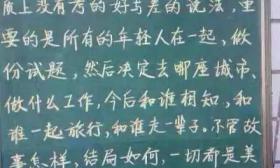 质上没有考的好与差的说法,重
要的是所有的年轻人在一起、做
份试题,然后决定去哪座城市、
做什么工作,今后和谁相知,和
谁一起旅行,和谁走一辈子。不管故
事怎样,结局如何,一切都是美